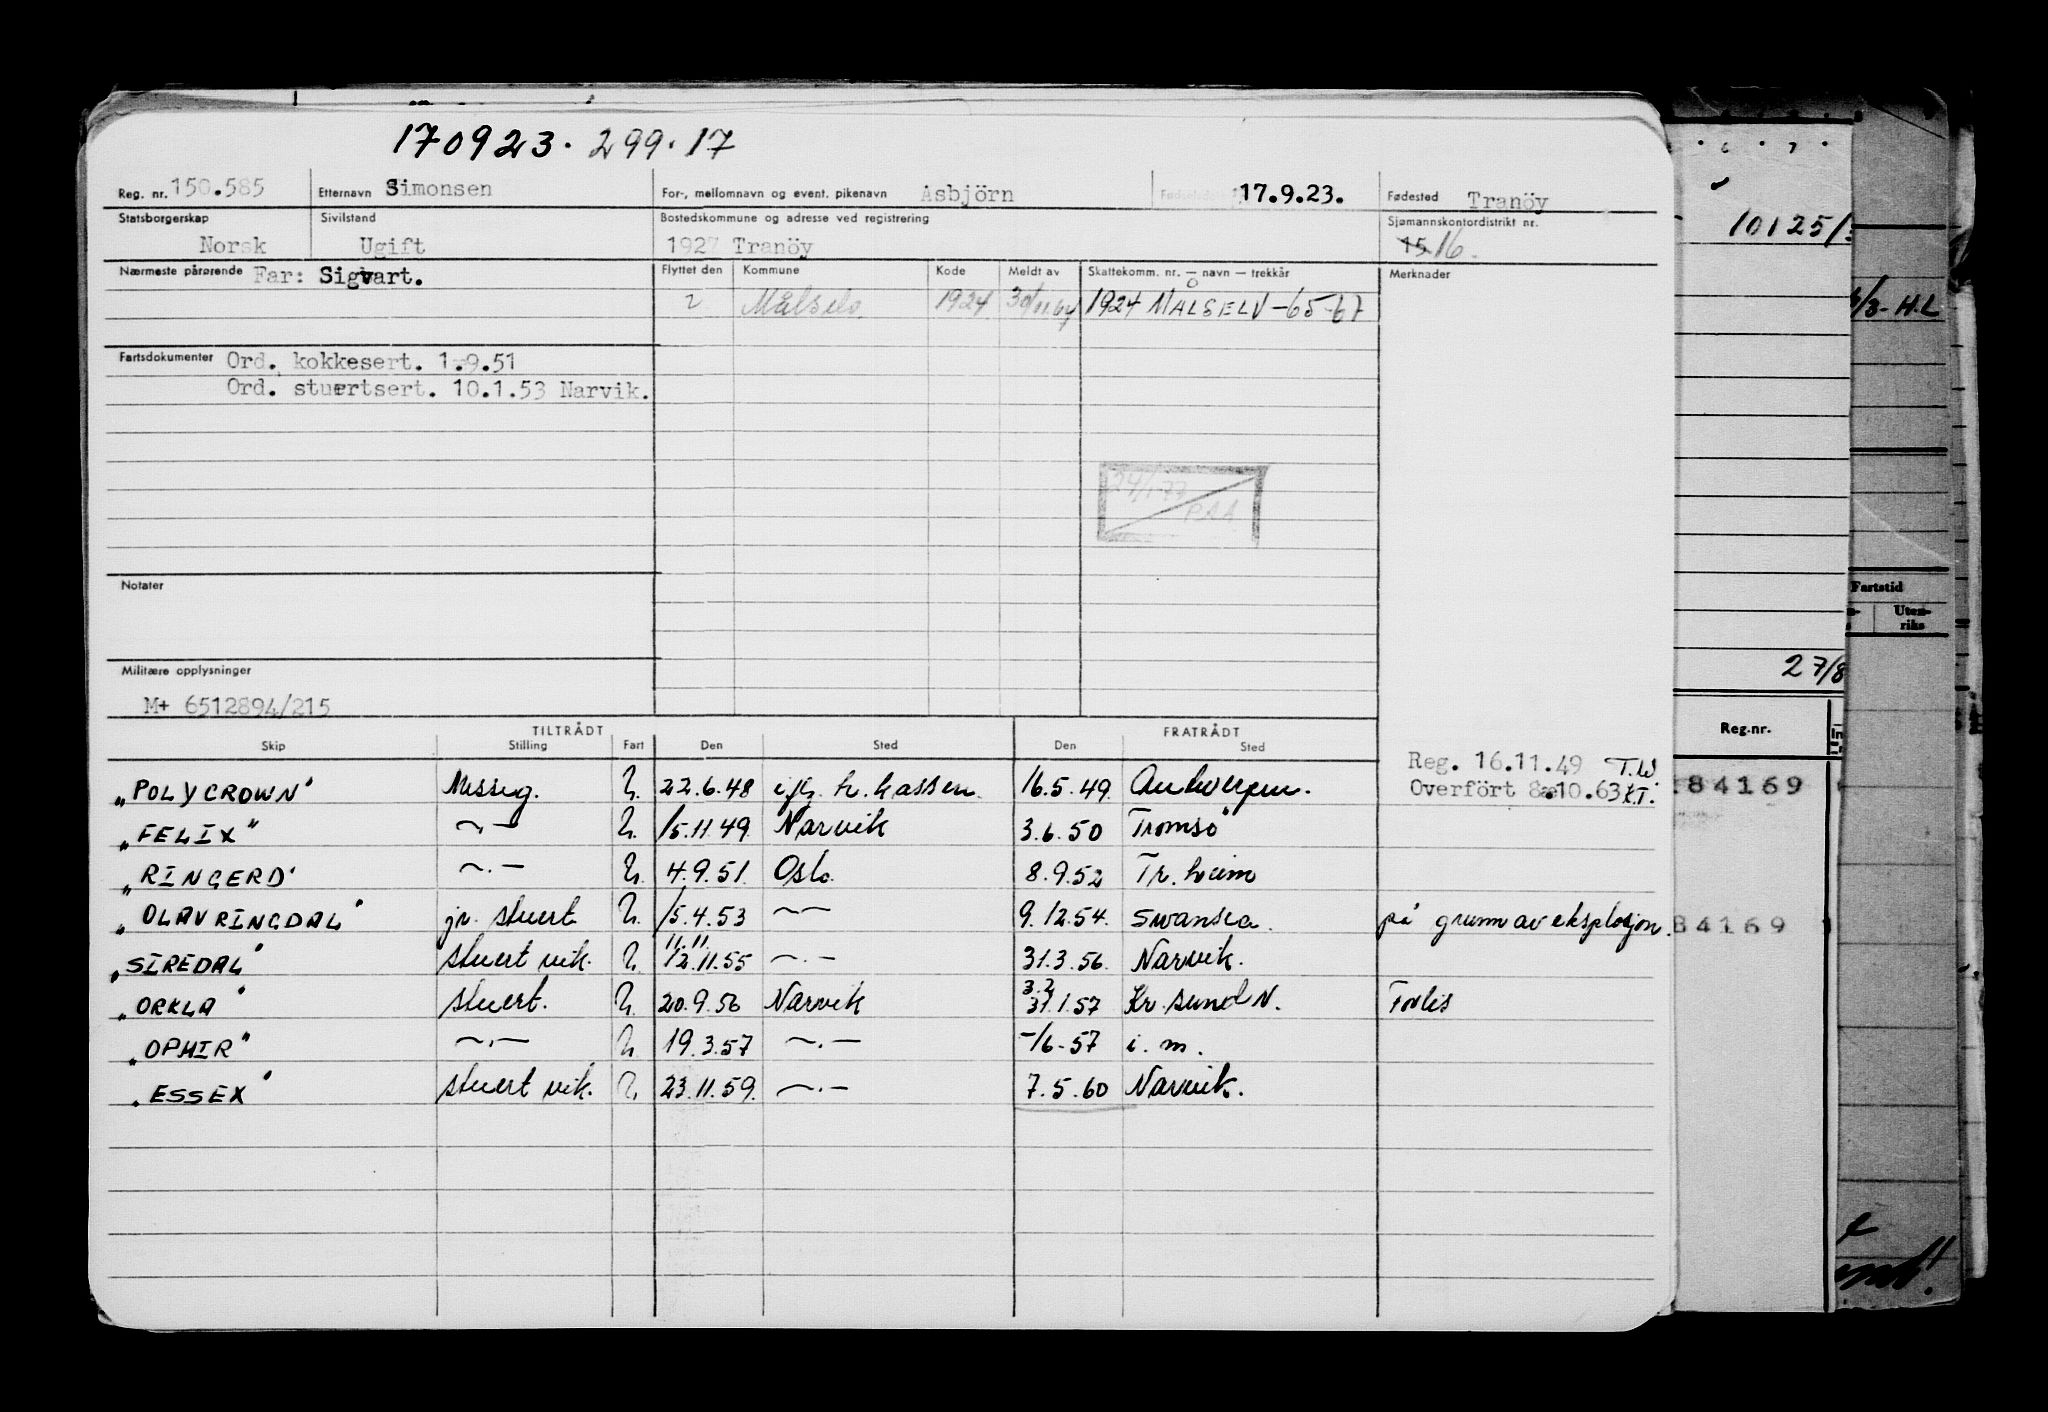 170923. 299.17
Reg. nr. 150.585 Etternavn Simonsen For-, mellomnavn og event. pikenavn Asbjörn 17.9.23. Fødested Tranöy
Statsborgerskap Sivilstand Bostedskommune og adresse ved registrering Sjømannskontordistrikt nr.
Norsk Ugift 1927 Tranöy 15 16.
Nærmeste pårørende Far: Sigvart. Flyttet den Kommune Kode Meldt av Skattekomm. nr. – navn – trekkår Merknader
Målselv 1924 30/11.64 1924 MÅLSELV -65-67
Fartsdokumenter Ord. kokkesert. 1.9.51
Ord. stuertsert. 10.1.53 Narvik.
24/1-77
PAA
Notater
Militære opplysninger
M+ 6512894/215
TILTRÅDT FRATRÅDT
Skip Stilling Fart Den Sted Den Sted
Reg. 16.11.49 T.W
Overfört 8.10.63 K.T.
"POLYCROWN" Messeg. U. 22.6.48 iflg. h. kassen. 16.5.49. Antwerpen.
"FELIX" ~.— U. 15.11.49. Narvik 3.6.50 Tromsö
"RINGERD" ~.— U. 4.9.51. Oslo. 8.9.52 Tr.heim
"OLAV RINGDAL" jr. stuert U. 15.4.53 ~— 9.12.54. Swansea. på grunn av eksplosjon.
11.11
"SIREDAL" stuert vik. U. 12.11.55 ~.— 31.3.56. Narvik.
3.2
"ORKLA" stuert. U. 20.9.56 Narvik 31.1.57 Kr.sund N. Forlis
"OPHIR" ~.— U. 19.3.57 ~.— -/6-57 i.m.
"ESSEX" stuert vik. U. 23.11.59. ~.— 7.5.60 Narvik.
10125/
/8- H.L
Fartstid
Uten-
riks
27/8
Reg.nr.
84169
84169